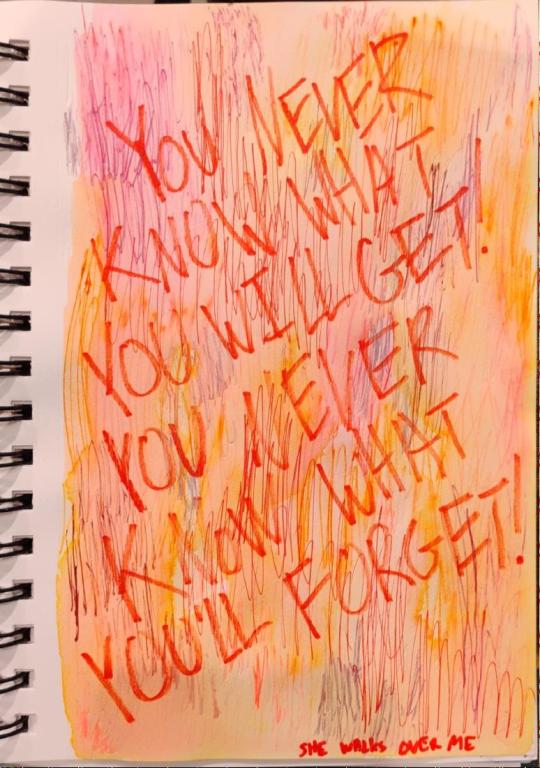 YOU NEVER
KNOW WHAT
YOU WILL GET!
YOU NEVER
KNOW WHAT
YOU'LL FORGET!
SHE WALKS OVER ME